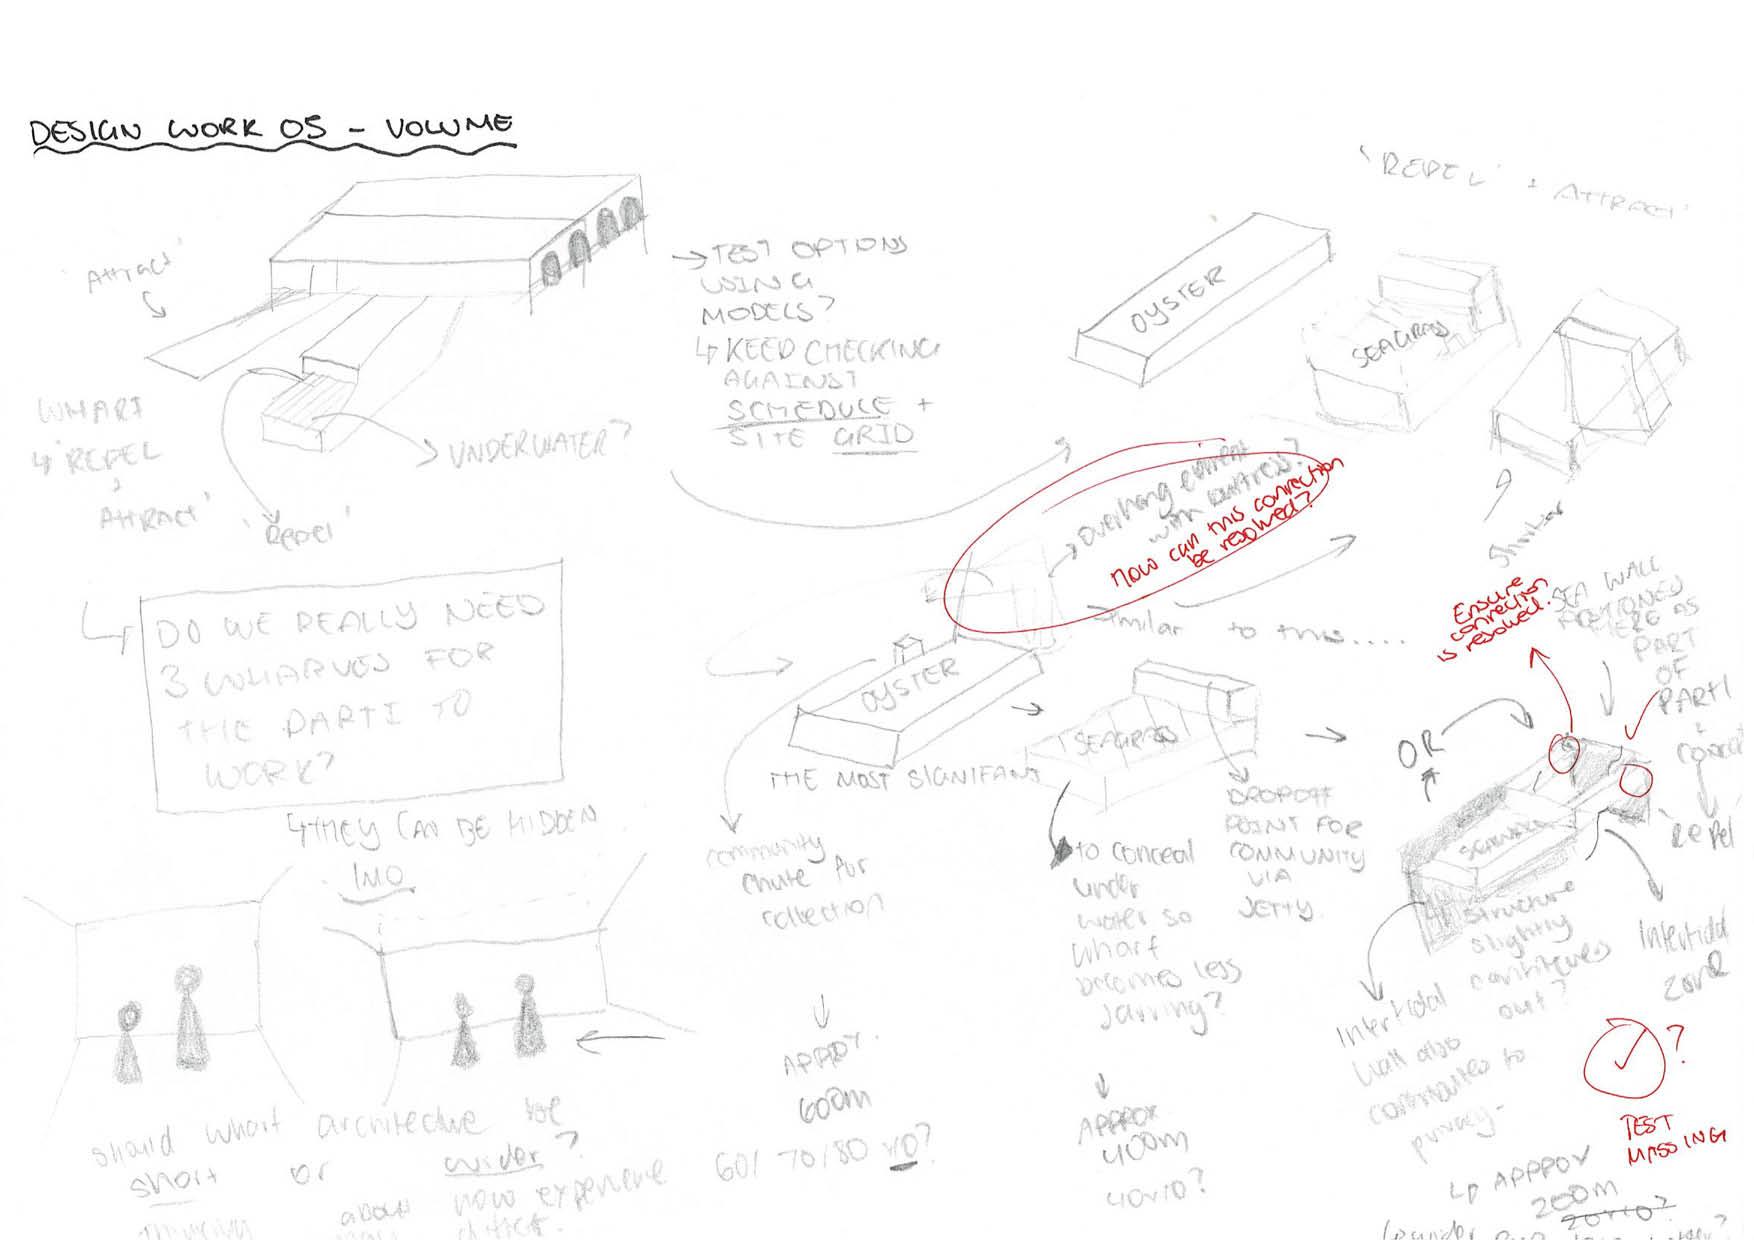 DESIGN WORK 05 - VOLUME
'REPEL' + ATTRACT'
'Attract'
→ TEST OPTIONS
USING
MODELS?
↳ KEED CHECKING
AGAINST
SCHEDULE +
SITE GRID
OYSTER
SEAGRASS
WHARF
↳ 'REPEL
+
ATTRACT'
'Repel'
UNDERWATER?
overhang
with buttress?
How can this connection
be resolved?
similar
similar to this.....
Ensure
connection
is resolved.
SEA WALL
HERE AS
PART
OF
PARTI
'Repel
DO WE REALLY NEED
3 WHARVES FOR
THE PARTI TO
WORK?
↳ THEY CAN BE HIDDEN
IMO
OYSTER
THE MOST SIGNIFANT
SEAGRASS
OR
community
chute for
collection
to conceal
under
water so
wharf
becomes less
jarring?
DROPOFF
POINT FOR
COMMUNITY
VIA
JETTY.
structure
slightly
continues
out?
Intertidal
zone
Intertidal
wall also
contributes to
privacy-
should wharf architecture be
short or wider?
thinking about how experience
differs.
APPROX.
600m
60/70/80 x10?
APPROX
400m
40x10?
?
TEST
MASSING
↳ APPPOX
200m
20x10?